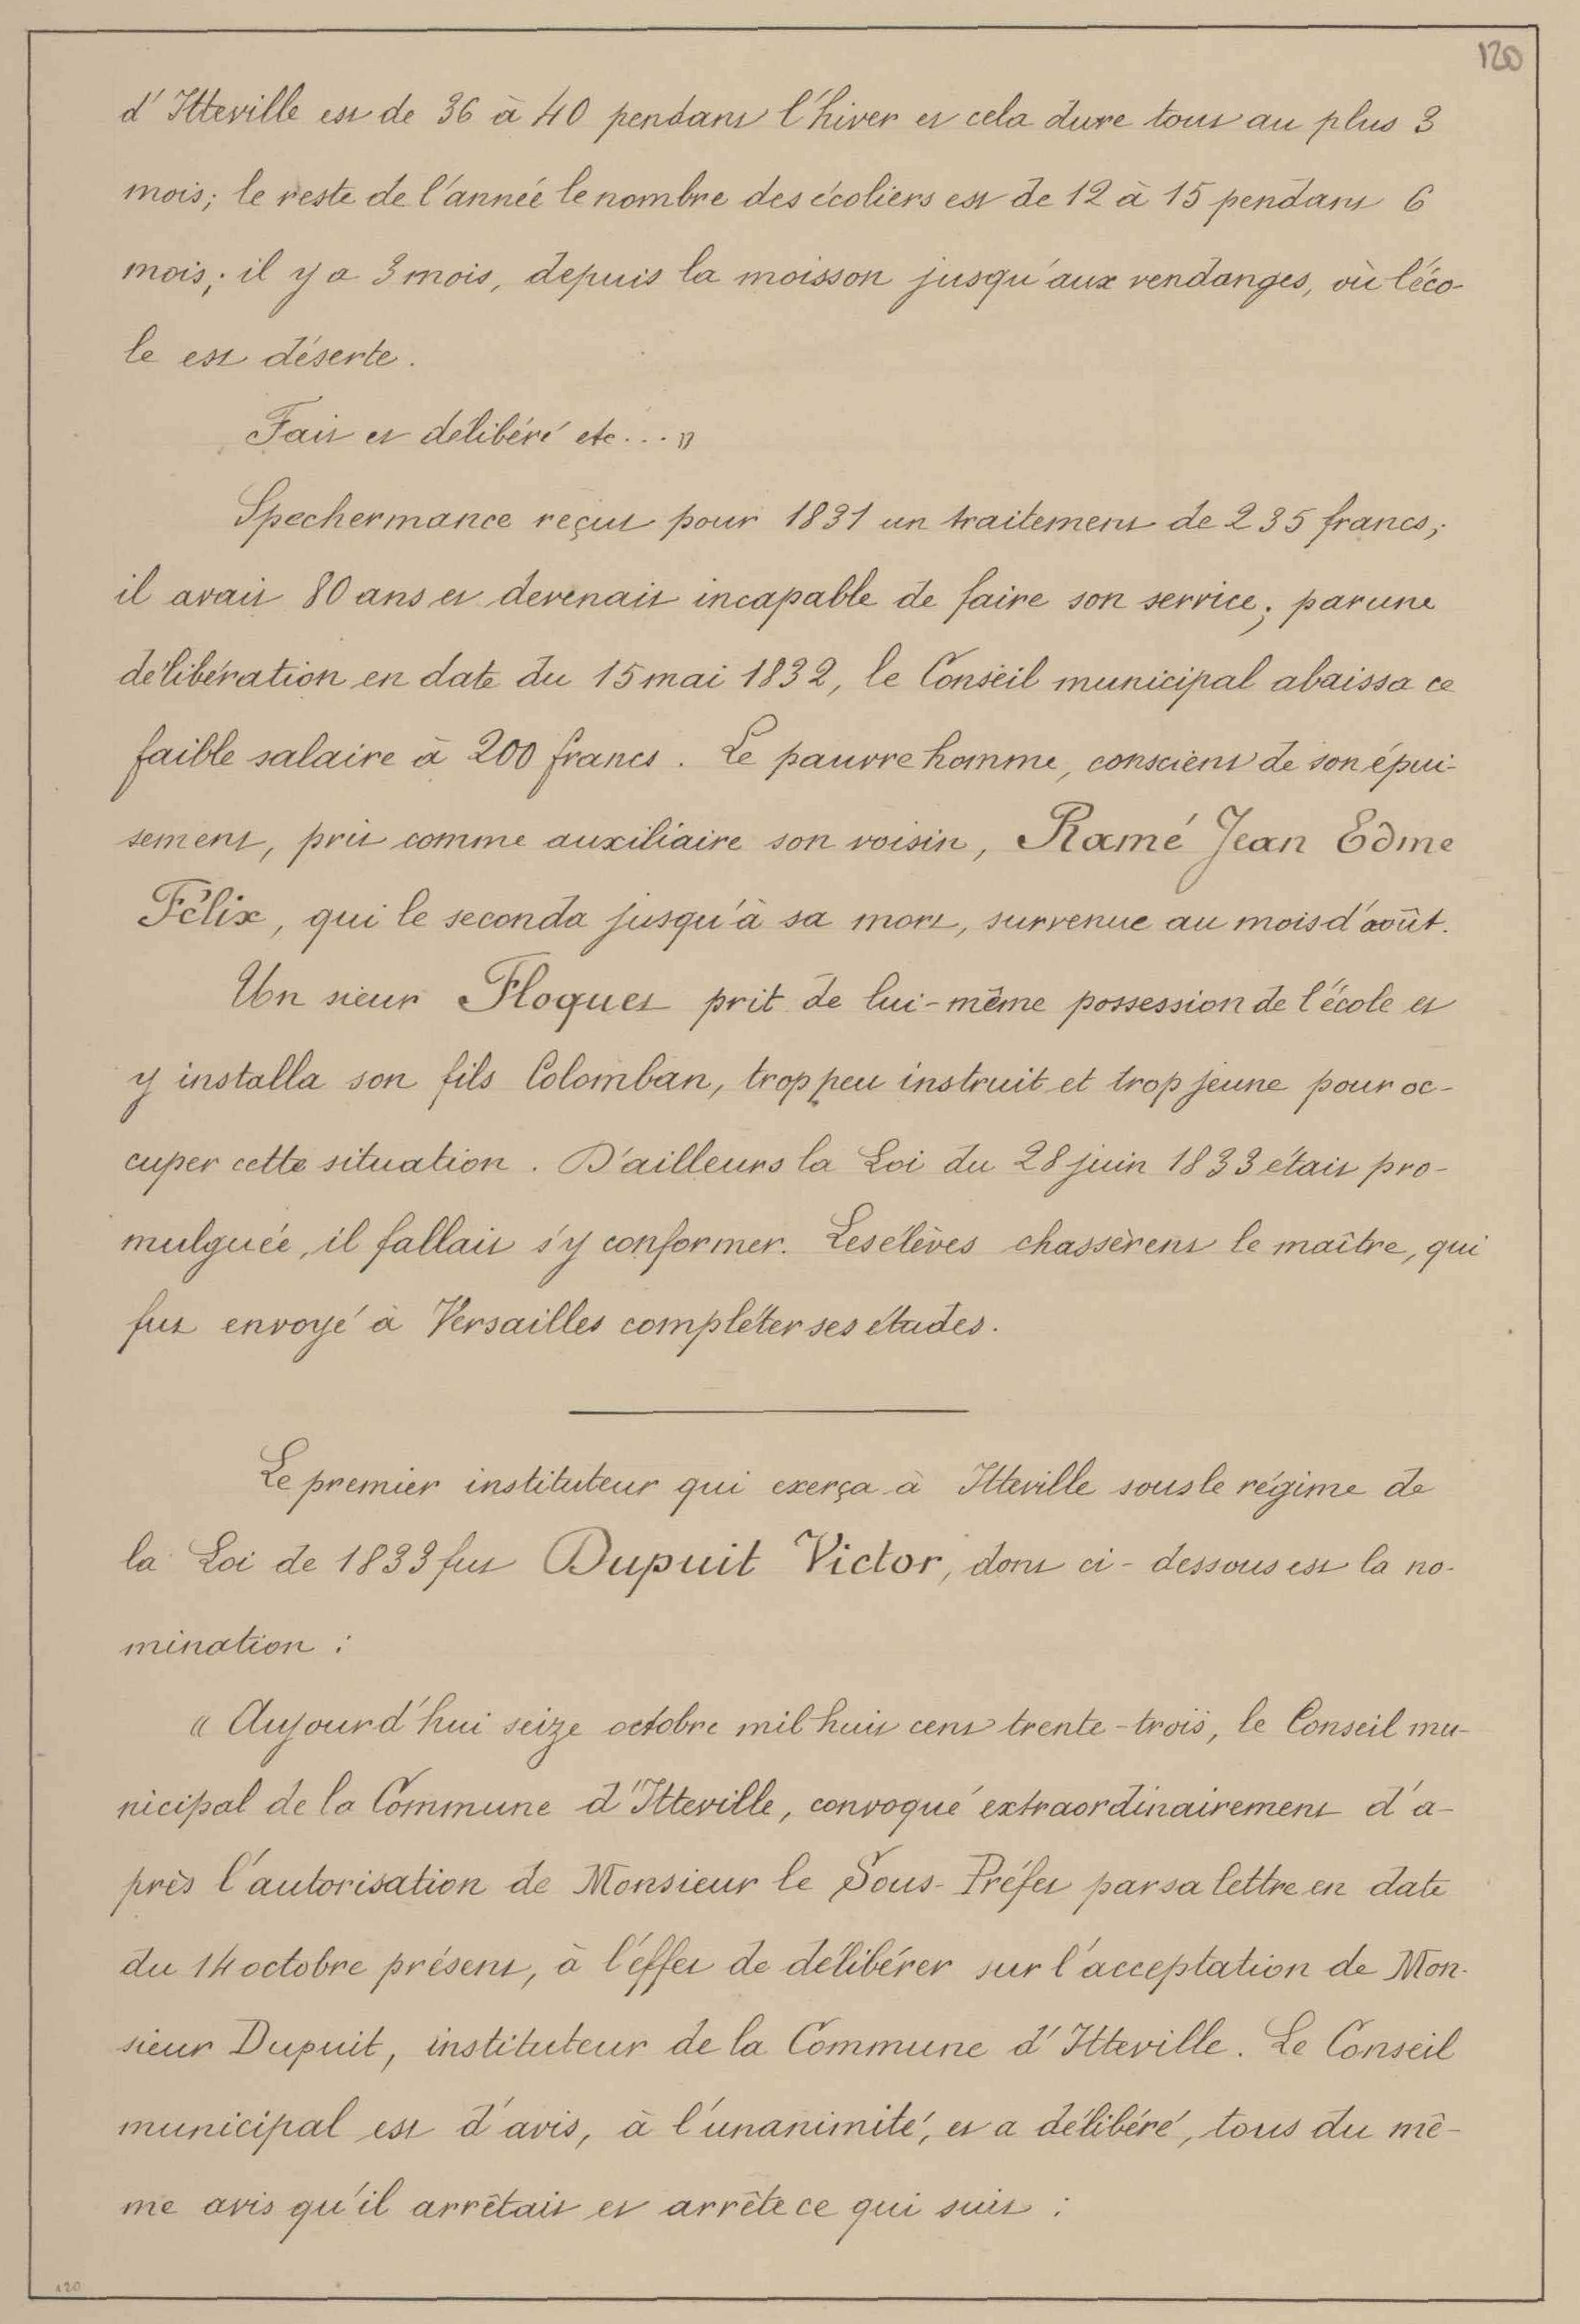 120
d'Itteville est de 36 à 40 pendant l'hiver et cela dure tout au plus 3
mois; le reste de l'année le nombre des écoliers est de 12 à 15 pendant 6
mois; il y a 3 mois, depuis la moisson jusqu'aux vendanges, où l'éco-
le est déserte.
Fait et délibéré etc... »
Spechermance reçut pour 1831 un traitement de 235 francs;
il avait 80 ans et devenait incapable de faire son service; par une
délibération en date du 15 mai 1832, le Conseil municipal abaissa ce
faible salaire à 200 francs. Le pauvre homme, conscient de son épui-
sement, prit comme auxiliaire son voisin, Ramé Jean Edme
Félix, qui le seconda jusqu'à sa mort, survenue au mois d'août.
Un sieur Floquet prit de lui-même possession de l'école et
y installa son fils Colomban, trop peu instruit et trop jeune pour oc-
cuper cette situation. D'ailleurs la Loi du 28 juin 1833 était pro-
mulguée, il fallait s'y conformer. Les élèves chassèrent le maître, qui
fut envoyé à Versailles compléter ses études.
Le premier instituteur qui exerça à Itteville sous le régime de
la Loi de 1833 fut Dupuit Victor, dont ci-dessous est la no-
mination :
« Aujourd'hui seize octobre mil huit cent trente-trois, le Conseil mu-
nicipal de la Commune d'Itteville, convoqué extraordinairement d'a-
près l'autorisation de Monsieur le Sous-Préfet par sa lettre en date
du 14 octobre présent, à l'effet de délibérer sur l'acceptation de Mon-
sieur Dupuit, instituteur de la Commune d'Itteville. Le Conseil
municipal est d'avis, à l'unanimité, et a délibéré, tous du mê-
me avis qu'il arrêtait et arrête ce qui suit :
120